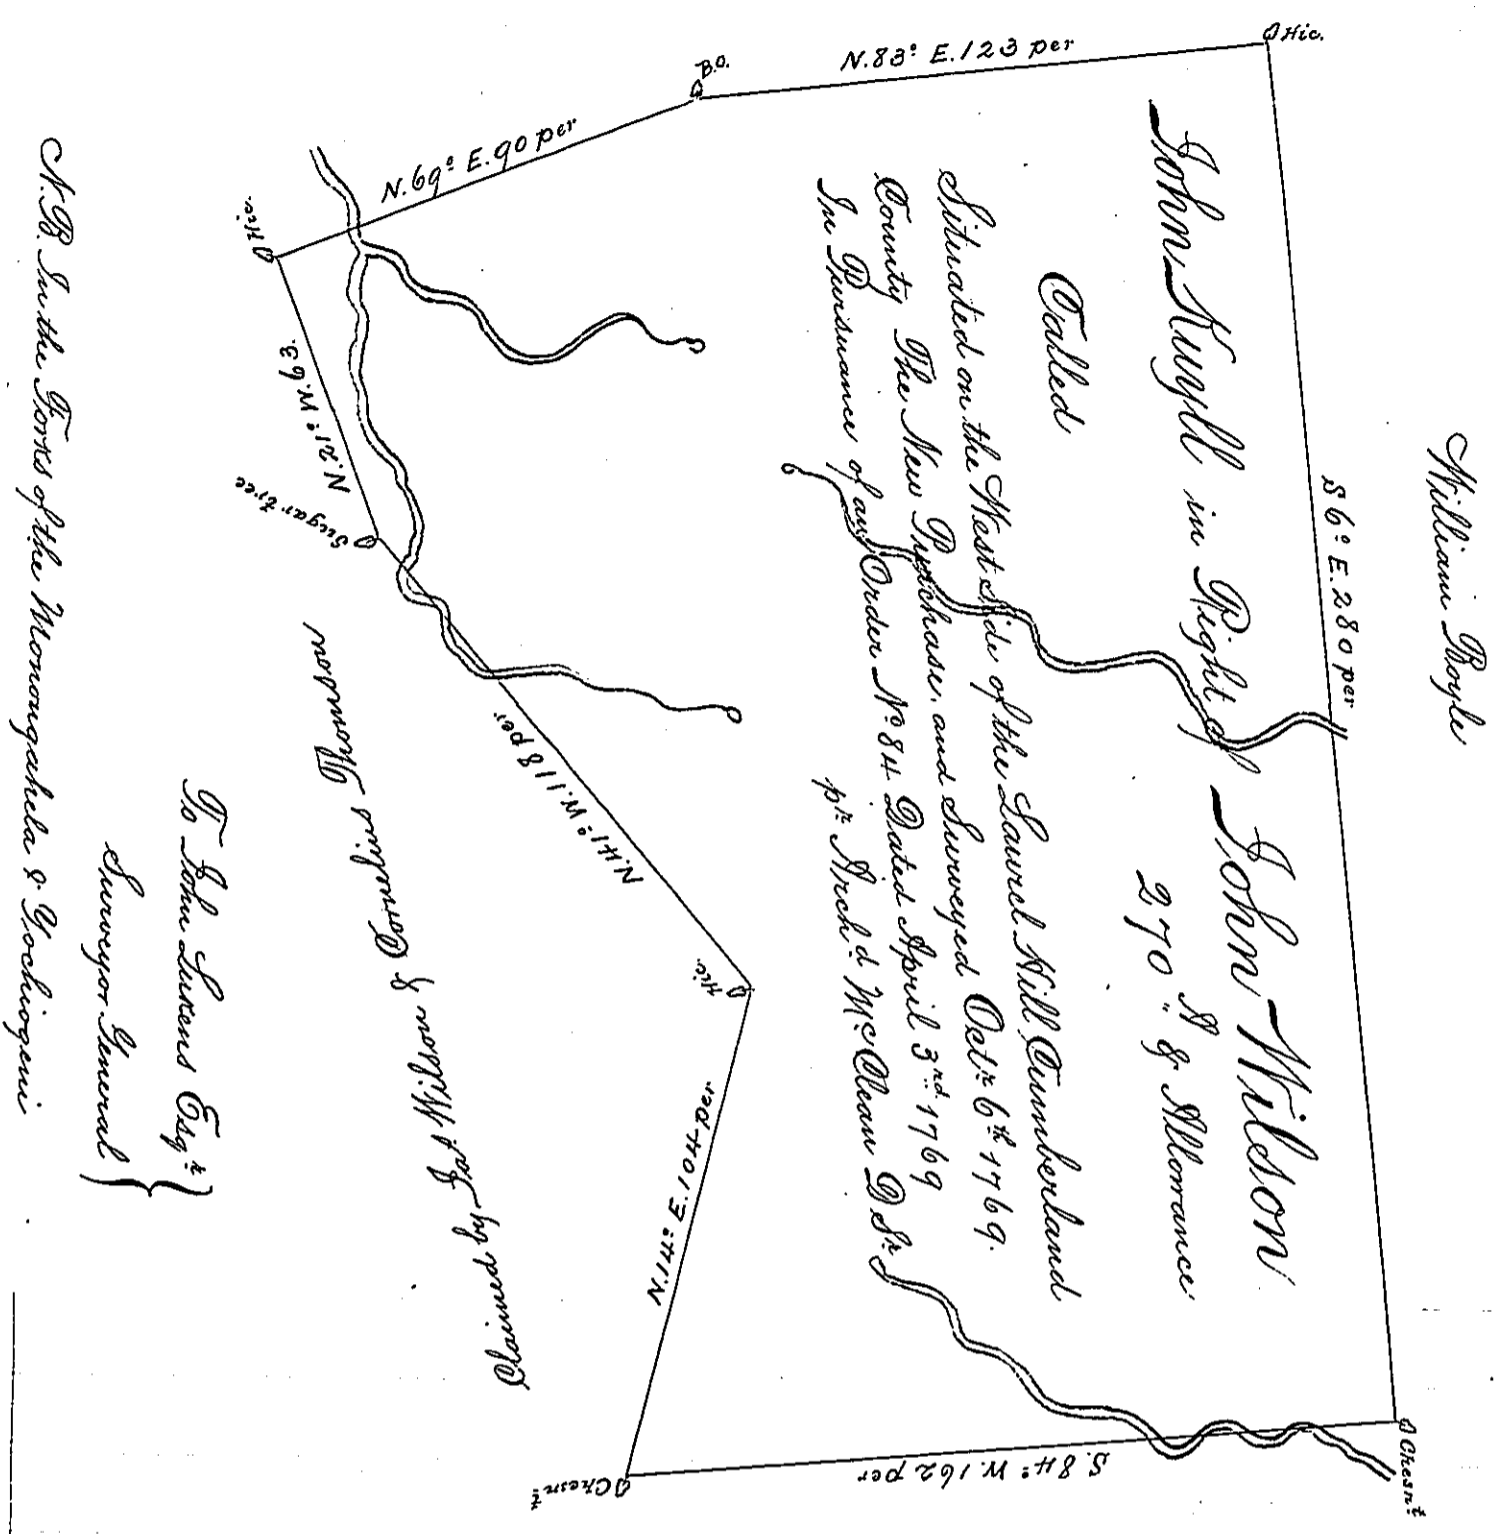 William Boyle
S 6° E. 280 per
Hic.
N. 83° E. 123 per
B.O.
N. 69° E. 90 per
Hic.
N. 21° W. 63.
Sugar tree
N. 41° W. 118 per
Hic.
N. 14° E. 104 per
Chesnt
S. 84° W. 162 per
Chesnt
John Wilson
John in Right of
270 A & Allowance
Called
Situated on the West side of the Laurel Hill Cumberland
County The New Purchase, and Surveyed Octr 6th 1769.
In Pursuance of an Order No 84 Dated April 3rd 1769
pr Archd McClean D Sr
Claimed by Wilson & Cornelius
To John Lukens Esqr
Surveyor General
N.B. In the Forks of the Monongahela & Yochiogeni